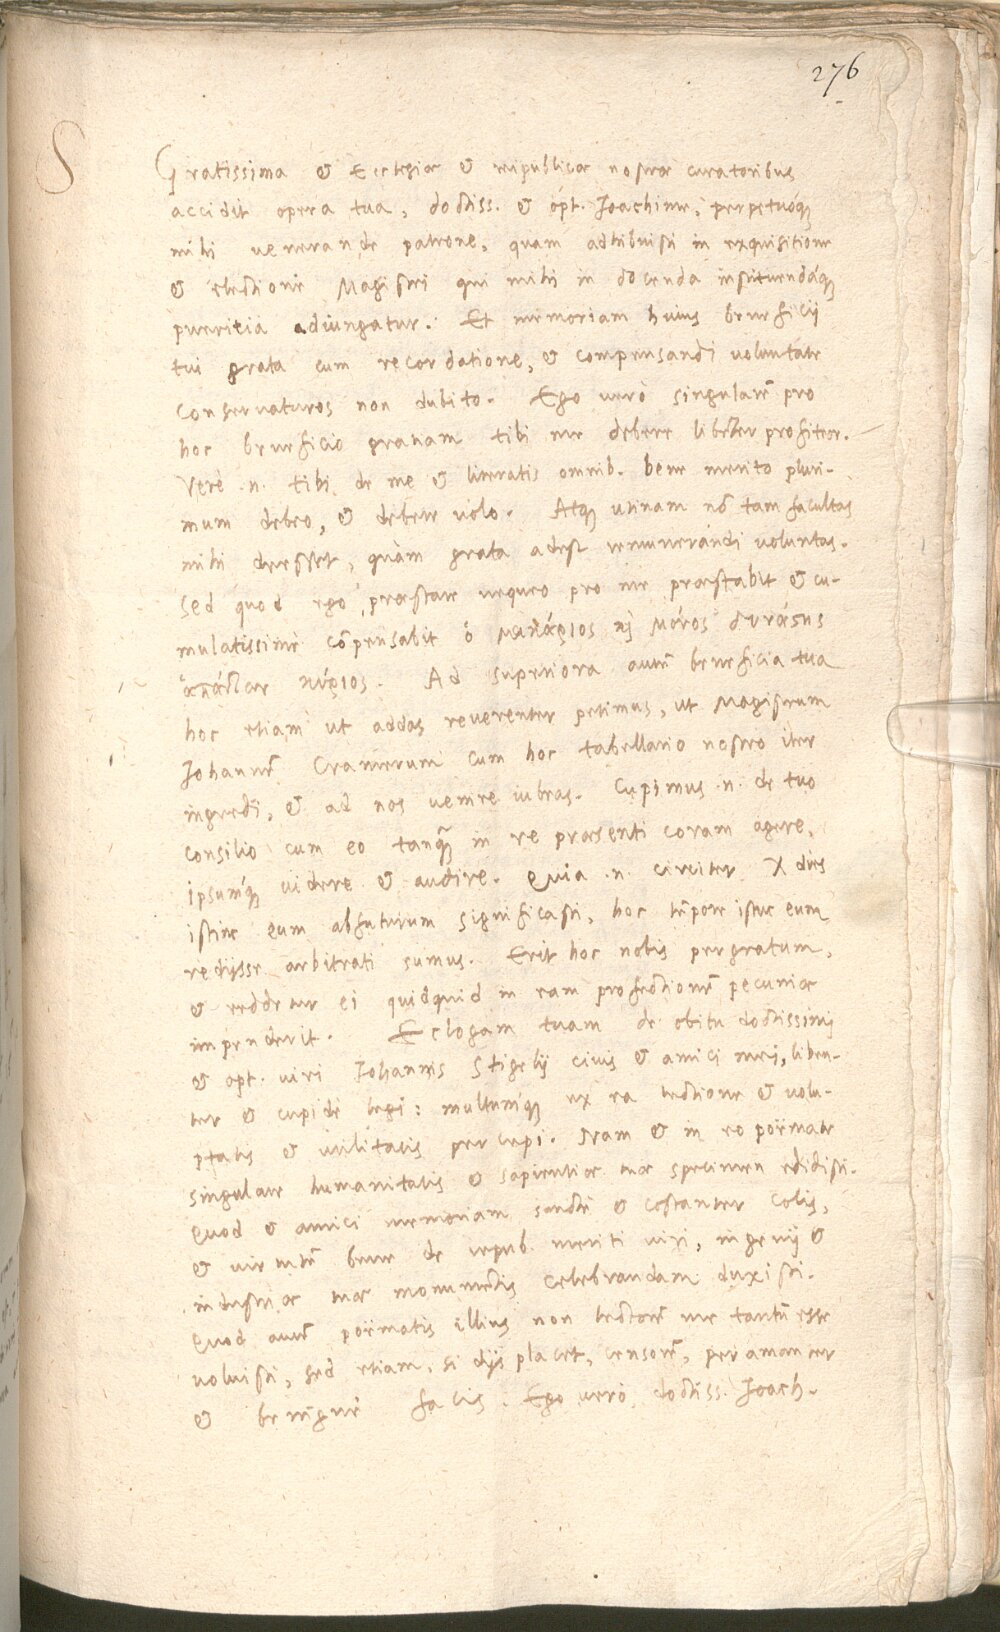 276
S
Gratissima & Ecclesiæ & reipublicæ nostræ curatoribus
accidit opera tua, doctiss. & opt. Joachime, perpetuoq́;
mihi uenerande patrone, quam adtribuisti in exquisitione
& electione Magistri qui mihi in docenda instituendáq;
pueritia adiungatur. Et memoriam huius beneficij
tui grata cum recordatione, & compensandi uoluntate
conseruaturos non dubito. Ego uerò singularē pro
hoc beneficio gratiam tibi me debere libẽter profiteor.
Verè .n. tibi de me & literatis omnib. bene merito pluri-
mum debeo, & debere uolo. Atq; utinam nō tam facultas
mihi deesset, quàm grata adest remunerandi uoluntas.
Sed quod ego præstare nequeo pro me præstabit & cu-
mulatissimè cōpensabit ὁ μακάριος καὶ μόνος δυνάστης
ἁπάντων κύριος. Ad superiora autē beneficia tua
hoc etiam ut addas reuerenter petimus, ut Magistrum
Johannē Cramerum cum hoc tabellario nostro iter
ingredi, & ad nos uenire iubeas. Cupimus .n. de tuo
consilio cum eo tanq̃; in re præsenti coram agere,
ipsumq́; uidere & audire. Quia .n. circiter X dies
istinc eum abfuturum significasti, hoc tēpore istuc eum
redijsse arbitrati sumus. Erit hoc nobis pergratum,
& reddetur ei quidquid in eam profectionē pecuniæ
impenderit. Eclogam tuam de obitu doctissimi
& opt. uiri Johannis Stigelij ciuis & amici mei, liben-
ter & cupidè legi: multumq́; ex ea lectione & uolu-
ptatis & utilitatis percepi. Nam & in eo poëmate
singulare humanitatis & sapientiæ tuæ specimen edidisti.
Quod & amici memoriam sanctè & cōstanter colis,
& uirtutē bene de repub. meriti uiri, ingenij &
industriæ tuæ monumētis celebrandam duxisti.
Quod autē poëmatis illius non lectorē me tantū esse
uoluisti, sed etiam, si dijs placet, censorē, peramanter
& benignè facis. Ego uerò, doctiss. Joach.